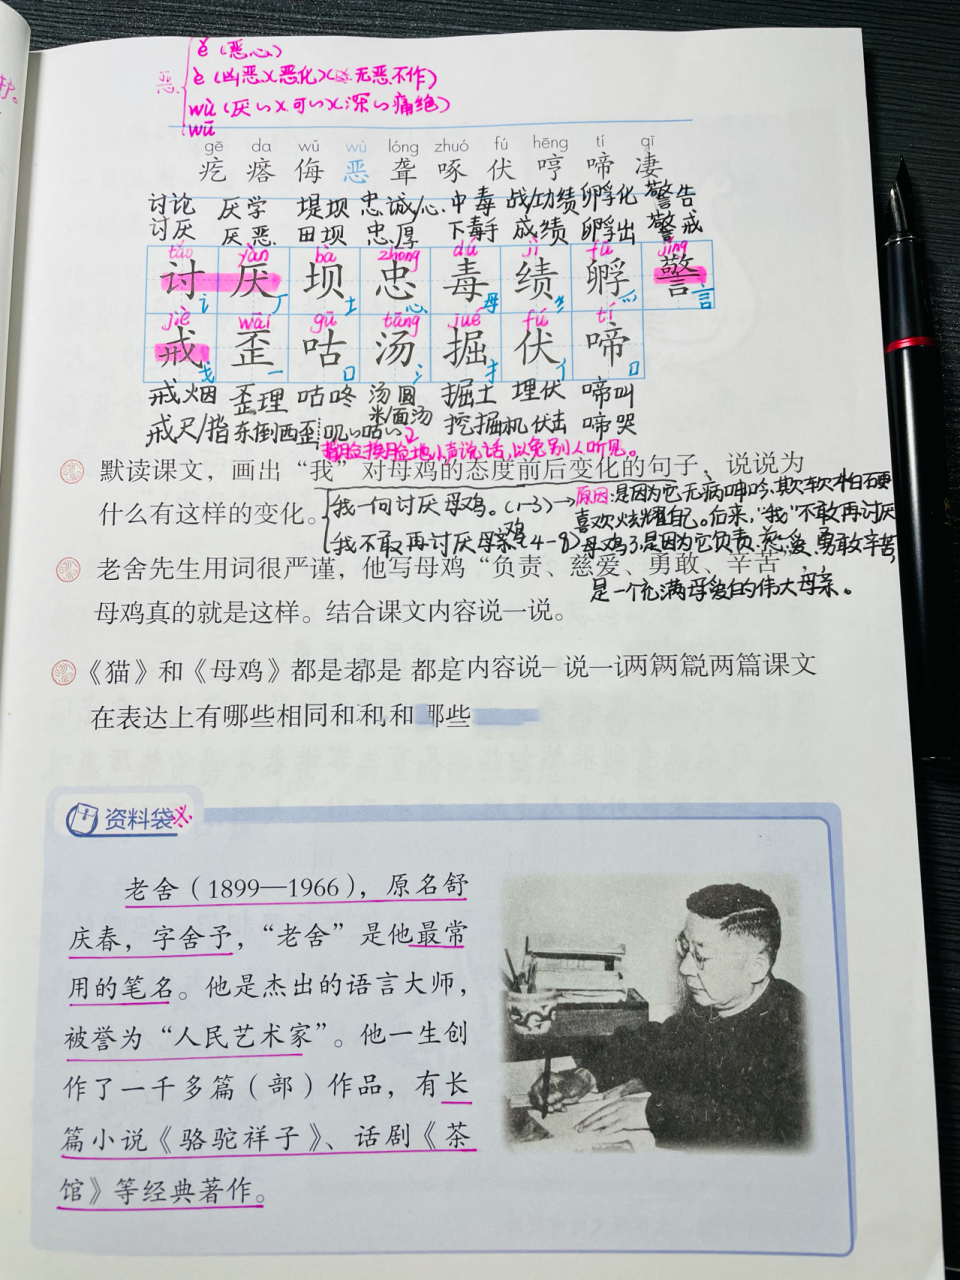 护。
恶
ě(恶心)
è(凶恶)(恶化)(无恶不作)
wù(厌~)(可~)(深~痛绝)
wū
gē da wǔ wù lóng zhuó fú hēng tí qī
疙 瘩 侮 恶 聋 啄 伏 哼 啼 凄
讨论 厌学 堤坝 忠诚/心 中毒 战/功绩 孵化 警告
讨厌 厌恶 田坝 忠厚 下毒手 成绩 孵出 警戒
tǎo yàn bà zhōng dú jì fū jǐng
讨 厌 坝 忠 毒 绩 孵 警
讠 厂 土 心 母 纟 灬 言
jiè wāi gū tāng jué fú tí
戒 歪 咕 汤 掘 伏 啼
戈 一 口 氵 扌 亻 口
戒烟 歪理 咕咚 汤圆 掘土 埋伏 啼叫
戒尺/指 东倒西歪 叽~咕~ 米/面汤 挖掘机 伏击 啼哭
地小声说话,以免别人听见。
默读课文,画出“我”对母鸡的态度前后变化的句子,说说为
什么有这样的变化。
我一向讨厌母鸡。(1-3)→原因:是因为它无病呻吟、欺软怕硬
喜欢炫耀自己。后来,“我”不敢再讨厌
我不敢再讨厌母鸡(4-8)
母鸡了,是因为它负责、慈爱、勇敢辛苦,
是一个充满母爱的伟大母亲。
老舍先生用词很严谨,他写母鸡“负责、慈爱、勇敢、辛苦”,
母鸡真的就是这样。结合课文内容说一说。
《猫》和《母鸡》都是老都是 都是 内容说一 说一 两篇两篇课文
在表达上有哪些相同和和和那些
资料袋
老舍(1899—1966),原名舒
庆春,字舍予,“老舍”是他最常
用的笔名。他是杰出的语言大师,
被誉为“人民艺术家”。他一生创
作了一千多篇(部)作品,有长
篇小说《骆驼祥子》、话剧《茶
馆》等经典著作。